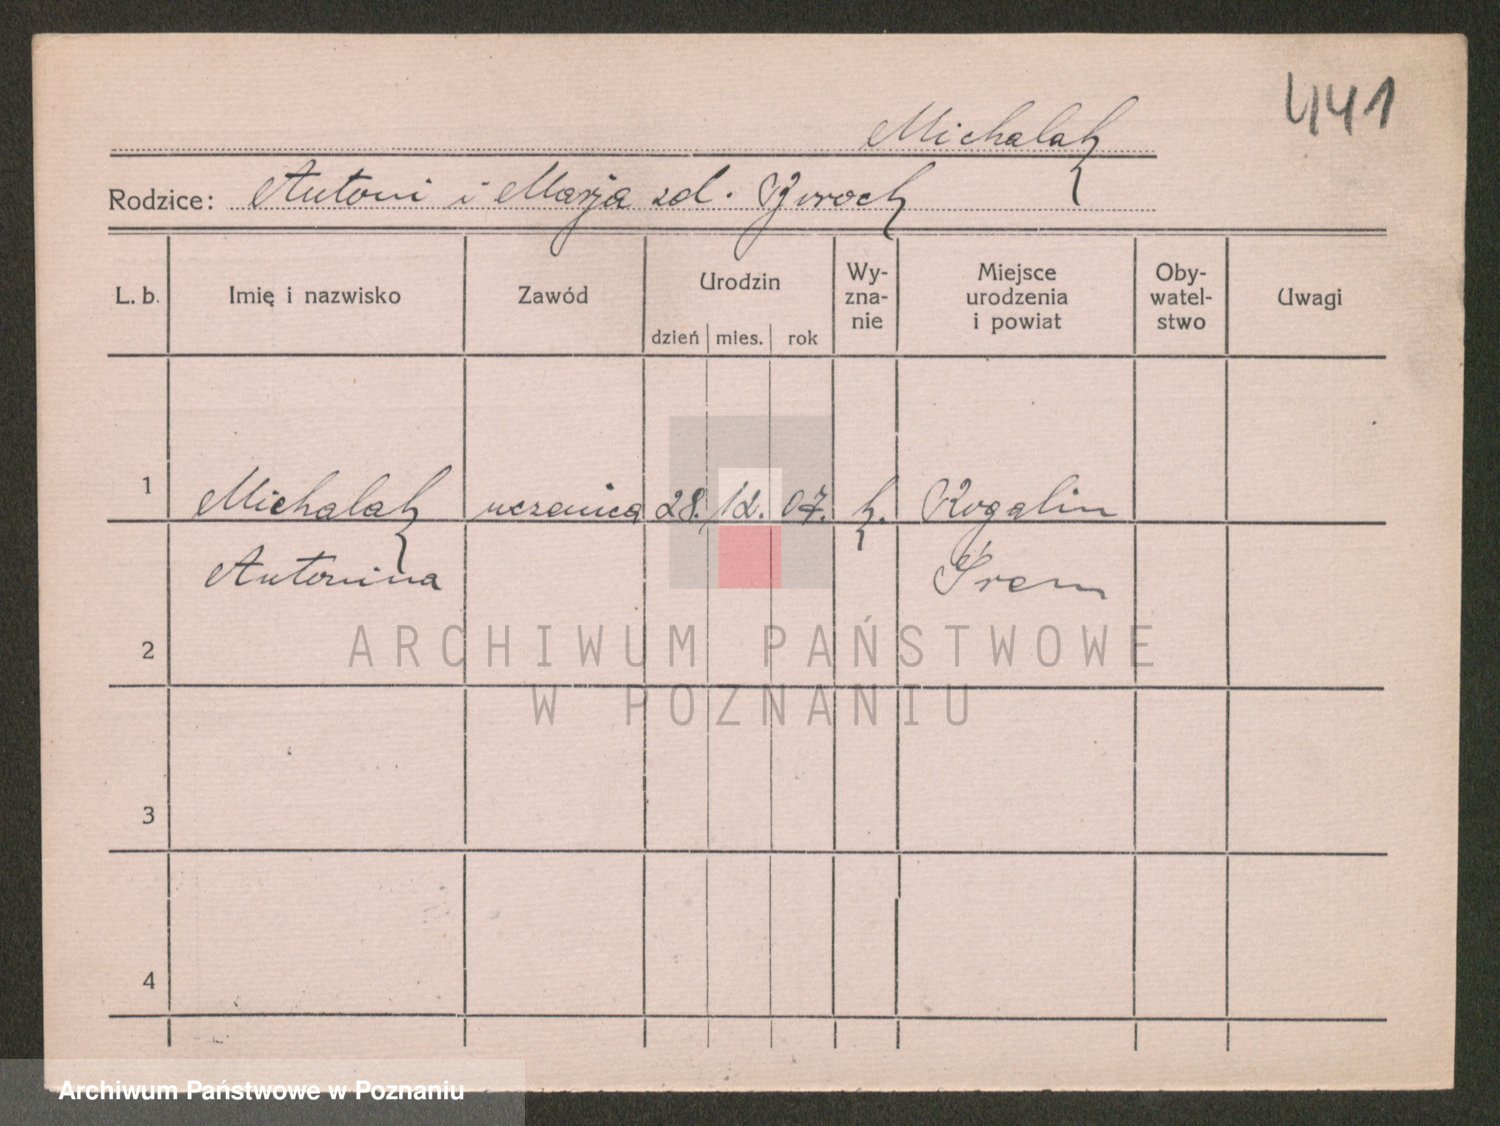 441
Michalak
Rodzice: Antoni i Marja zd.
L. b. Imię i nazwisko Zawód Urodzin dzień mies. rok Wy-zna-nie Miejsce urodzenia i powiat Oby-watel-stwo Uwagi
1 Michalak uczenica 28. 12. 07. k. Rogalin
Antonina Śrem
2
ARCHIWUM PAŃSTWOWE
W POZNANIU
3
4
Archiwum Państwowe w Poznaniu